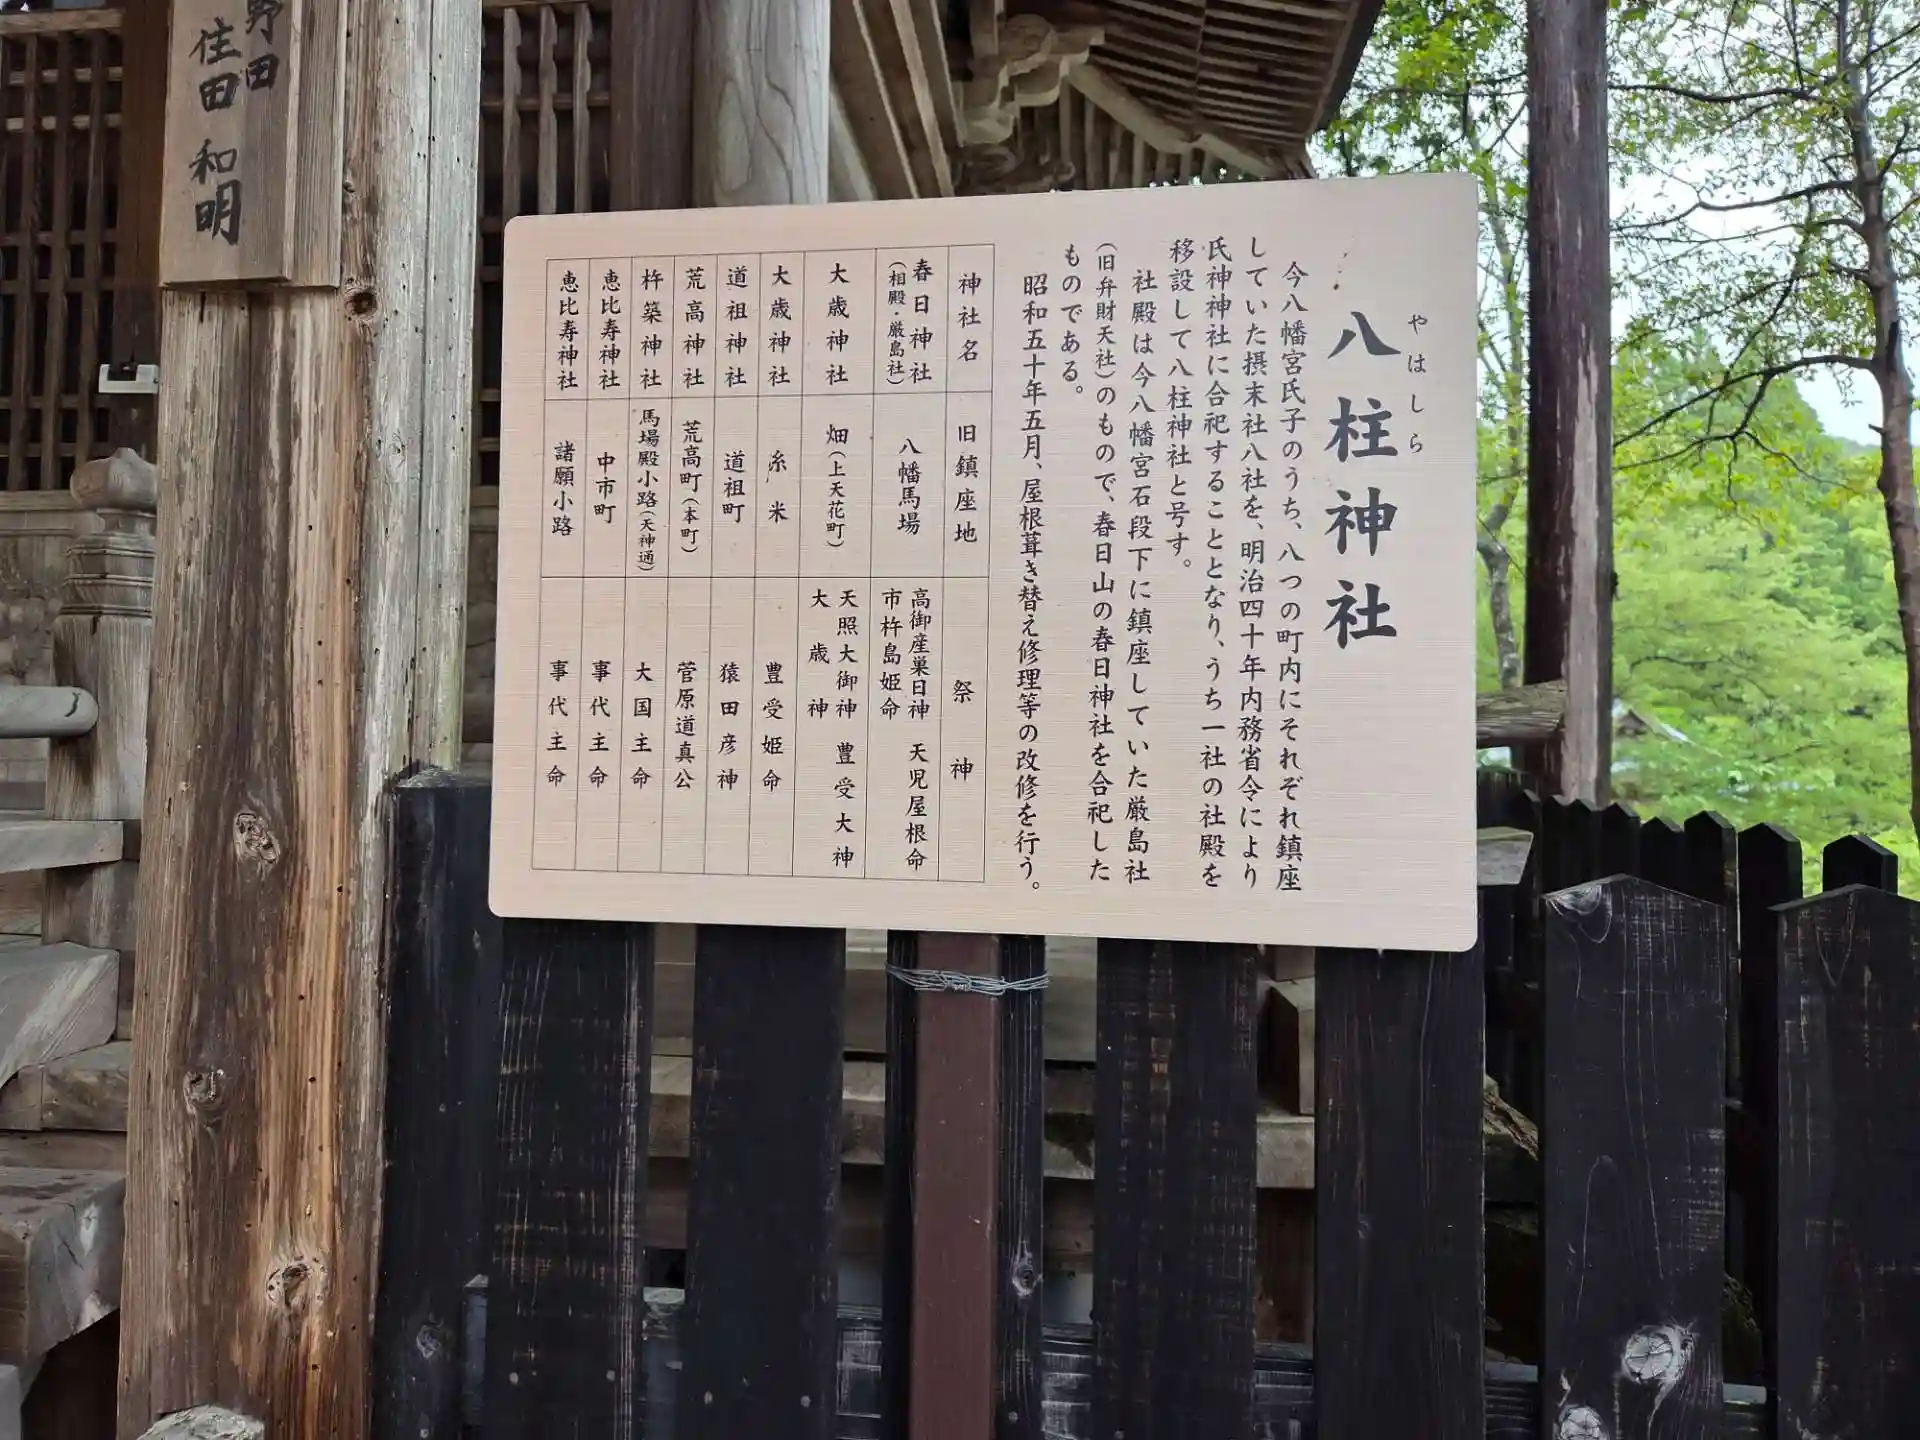 八柱神社
やはしら
今八幡宮氏子のうち、八つの町内にそれぞれ鎮座
していた摂末社八社を、明治四十年内務省令により
氏神神社に合祀することとなり、うち一社の社殿を
移設して八柱神社と号す。
社殿は今八幡宮石段下に鎮座していた厳島社
(旧弁財天社)のもので、春日山の春日神社を合祀した
ものである。
昭和五十年五月、屋根葺き替え修理等の改修を行う。
神社名 旧鎮座地 祭神
春日神社 (相殿・厳島社) 八幡馬場 高御産巣日神 天児屋根命 市杵島姫命
大歳神社 畑(上天花町) 天照大御神 豊受大神 大歳神
大歳神社 糸米 豊受姫命
道祖神社 道祖町 猿田彦神
荒高神社 荒高町(本町) 菅原道真公
杵築神社 馬場殿小路(天神通) 大国主命
恵比寿神社 中市町 事代主命
恵比寿神社 諸願小路 事代主命
野田
住田和明